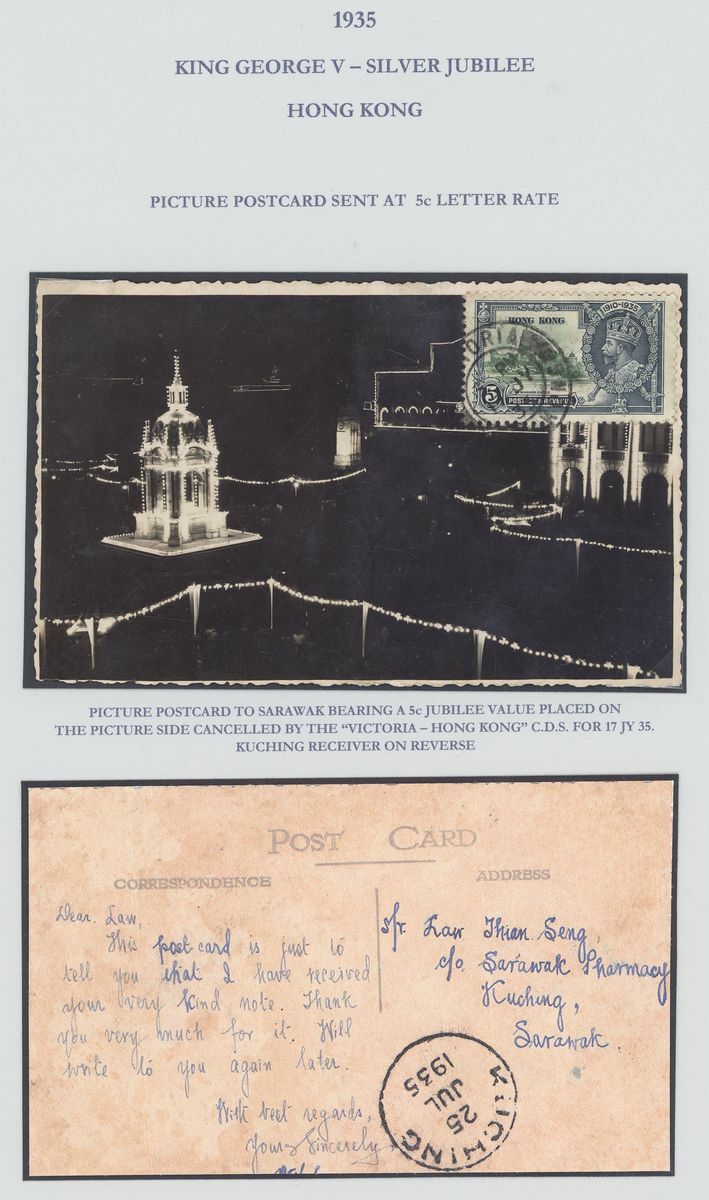 1935
KING GEORGE V – SILVER JUBILEE
HONG KONG
PICTURE POSTCARD SENT AT 5c LETTER RATE
1910-1935
HONG KONG
VICTORIA
5c
POSTAGE & REVENUE
PICTURE POSTCARD TO SARAWAK BEARING A 5c JUBILEE VALUE PLACED ON
THE PICTURE SIDE CANCELLED BY THE “VICTORIA – HONG KONG” C.D.S. FOR 17 JY 35.
KUCHING RECEIVER ON REVERSE
POST CARD
CORRESPONDENCE
ADDRESS
Dear Law,
This post-card is just to
tell you that I have received
your very kind note. Thank
you very much for it. Will
write to you again later.
With best regards,
Yours Sincerely
Law Thian Seng,
c/o. Sarawak Pharmacy
Kuching,
Sarawak.
KUCHING
25
JUL
1935